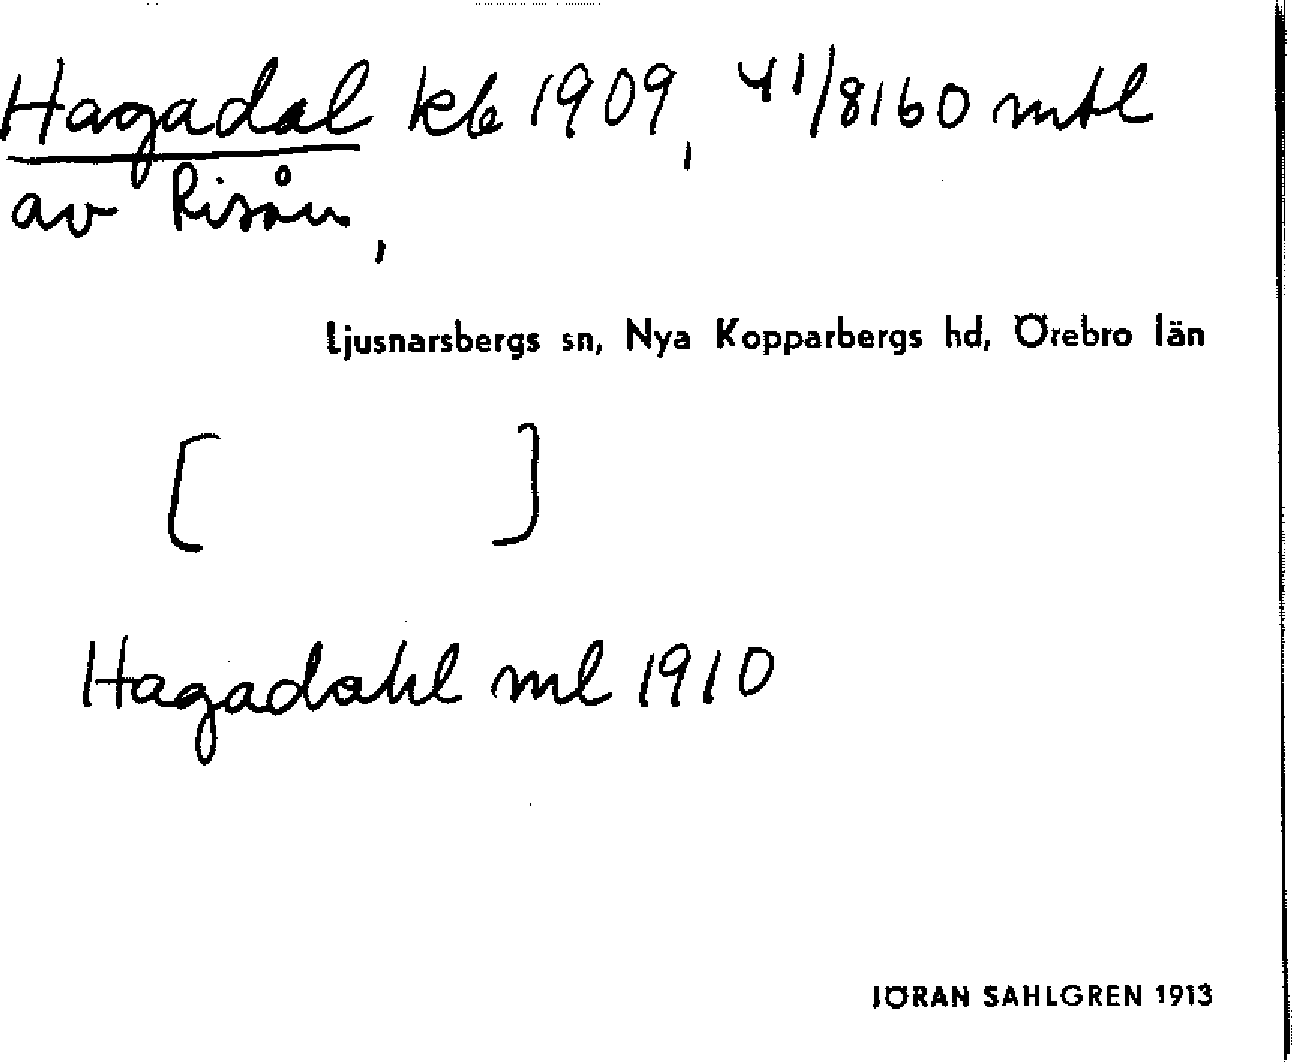 Hagadal kb 1909, 41/8160 mtl
av Risån,
Ljusnarsbergs sn, Nya Kopparbergs hd, Örebro län
[ ]
Hagadahl ml 1910
JÖRAN SAHLGREN 1913